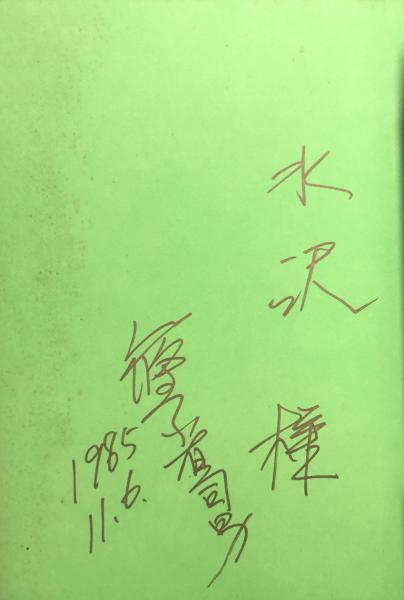 水沢様
篠原有司男
1985
11.6.